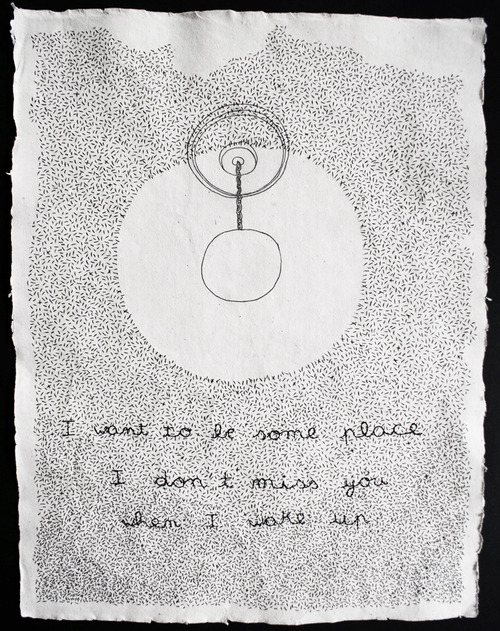 I want to be some place
I don't miss you
when I wake up